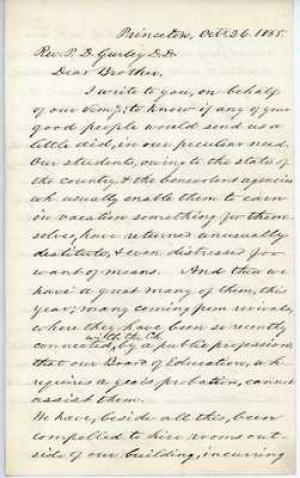 Princeton, Octr. 26. 1858.
Rev. P. D. Gurley D.D.
Dear Brother,
I write to you, on behalf
of our Semy. to know if any of your
good people would send us a
little aid, in our peculiar need.
Our students, owing to the state of
the country, & the benevolent agencies
wh. usually enable them to earn
in vacation something for them-
selves, have returned unusually
destitute, & even distressed for
want of means. And then we
have a great many of them, this
year; many coming from revivals,
where they have been so recently
with the Ch.
connected, by a public profession,
that our Board of Education, wh.
requires a year's probation, cannot
assist them.
We have, beside all this, been
compelled to hire rooms out-
side of our building, incurring